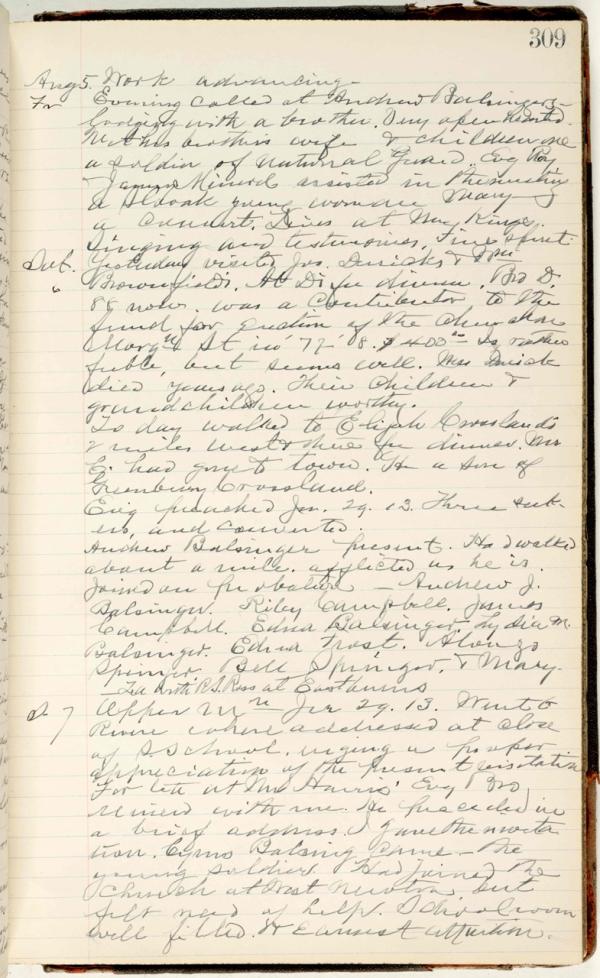 309
Aug 5. Work advancing.
Fr Evening called at Andrew Balsingers.
Lodging with a brother. Very open hearted.
Met his brothers wife & children one
a soldier of National Guard. Evg Ray
& James Minerd assisted in the meeting
a Slovak young woman Mary
a convert. Lives at Mr Kings.
Singing and testimonies. Fine spirit.
Sat. Yesterday visited Jos. &
6 Brownfields. At D. for dinner. Bro D.
88 now. was a contributor to the
fund for erection of the church on
Morgn St in '77 '8. $400 Is rather
feble, but seems well. Mrs
died years ago. Their children &
grandchildren worthy.
To day walked to Elijah Crosslands
2 miles west & there for dinner. Mr
C. had gone to town. He a son of
Greenbury Crossland.
Evig preached Jer. 29.13. Three seek-
ers, and converted.
Andrew Balsinger present. Had walked
about a mile. afflicted as he is.
Joined on probation — Andrew J.
Balsinger. Riley Campbell. James
Campbell. Edna Balsinger. Lydia M.
Balsinger. Edna Frost. Alonzo
Springer. Bell Springer, & Mary.
Tea with R.S. Ross at
S 7 Upper Mn Jer 29.13. Went to
River where addressed at close
of S. School. urging a proper
appreciation of the present visitation
For tea at Mr Harris' Evg Bro
Minerd with me. He preceded in
a brief address. I gave the invita
tion. Cyrus Balsing came — the
young soldier. Had joined the
Church at West Newton but
felt need of help. School room
well filled. & earnest attention.